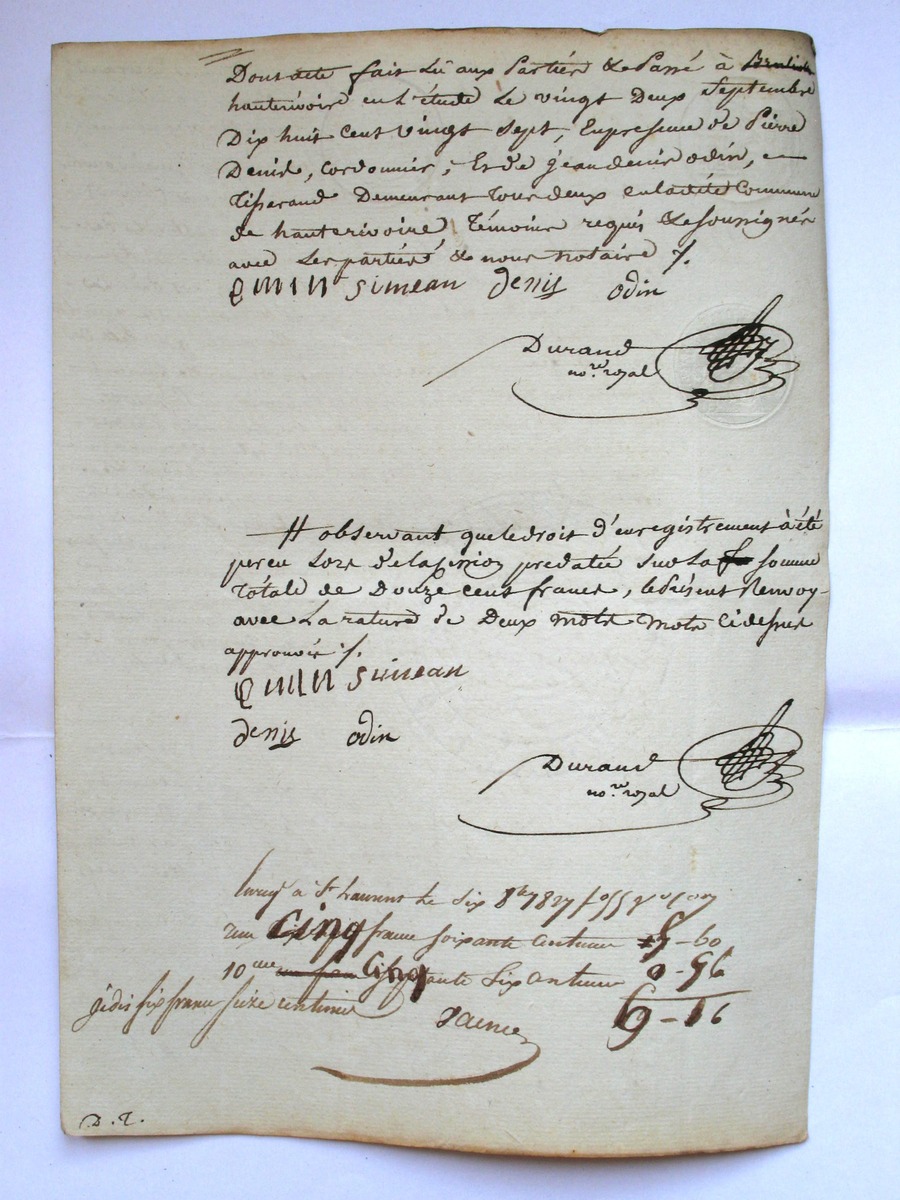 Dont acte fait Lû aux Partiés & Passé à
hauterivoire en L'étude Le vingt Deux Septembre
Dix huit Cent vingt Sept, En presence de Pierre
Denis, Cordonnier, Et de jean denis odin,
Tisserand Demeurant tous deux en ladité Commune
de hauterivoire Témoins requis & soussignés
avec Les partiés & nous notaire ./.
simean denis odin
Durand
no.re royal
# observant que le droit d'enregistrement à été
percu Lors de la predatée sur La somme
Totale de Douze cent francs, le présent Renvoy
avec La rature de Deux mots mots Ci dessus
approuvée ./.
simean
denis odin
Durand
no.re royal
à St Laurent Le Six 8bre 1827
Cinq francs soixante centimes 5-60
10me Cinquante Six centimes 0-56
jedis six francs seize centimes 6-16
D. T.